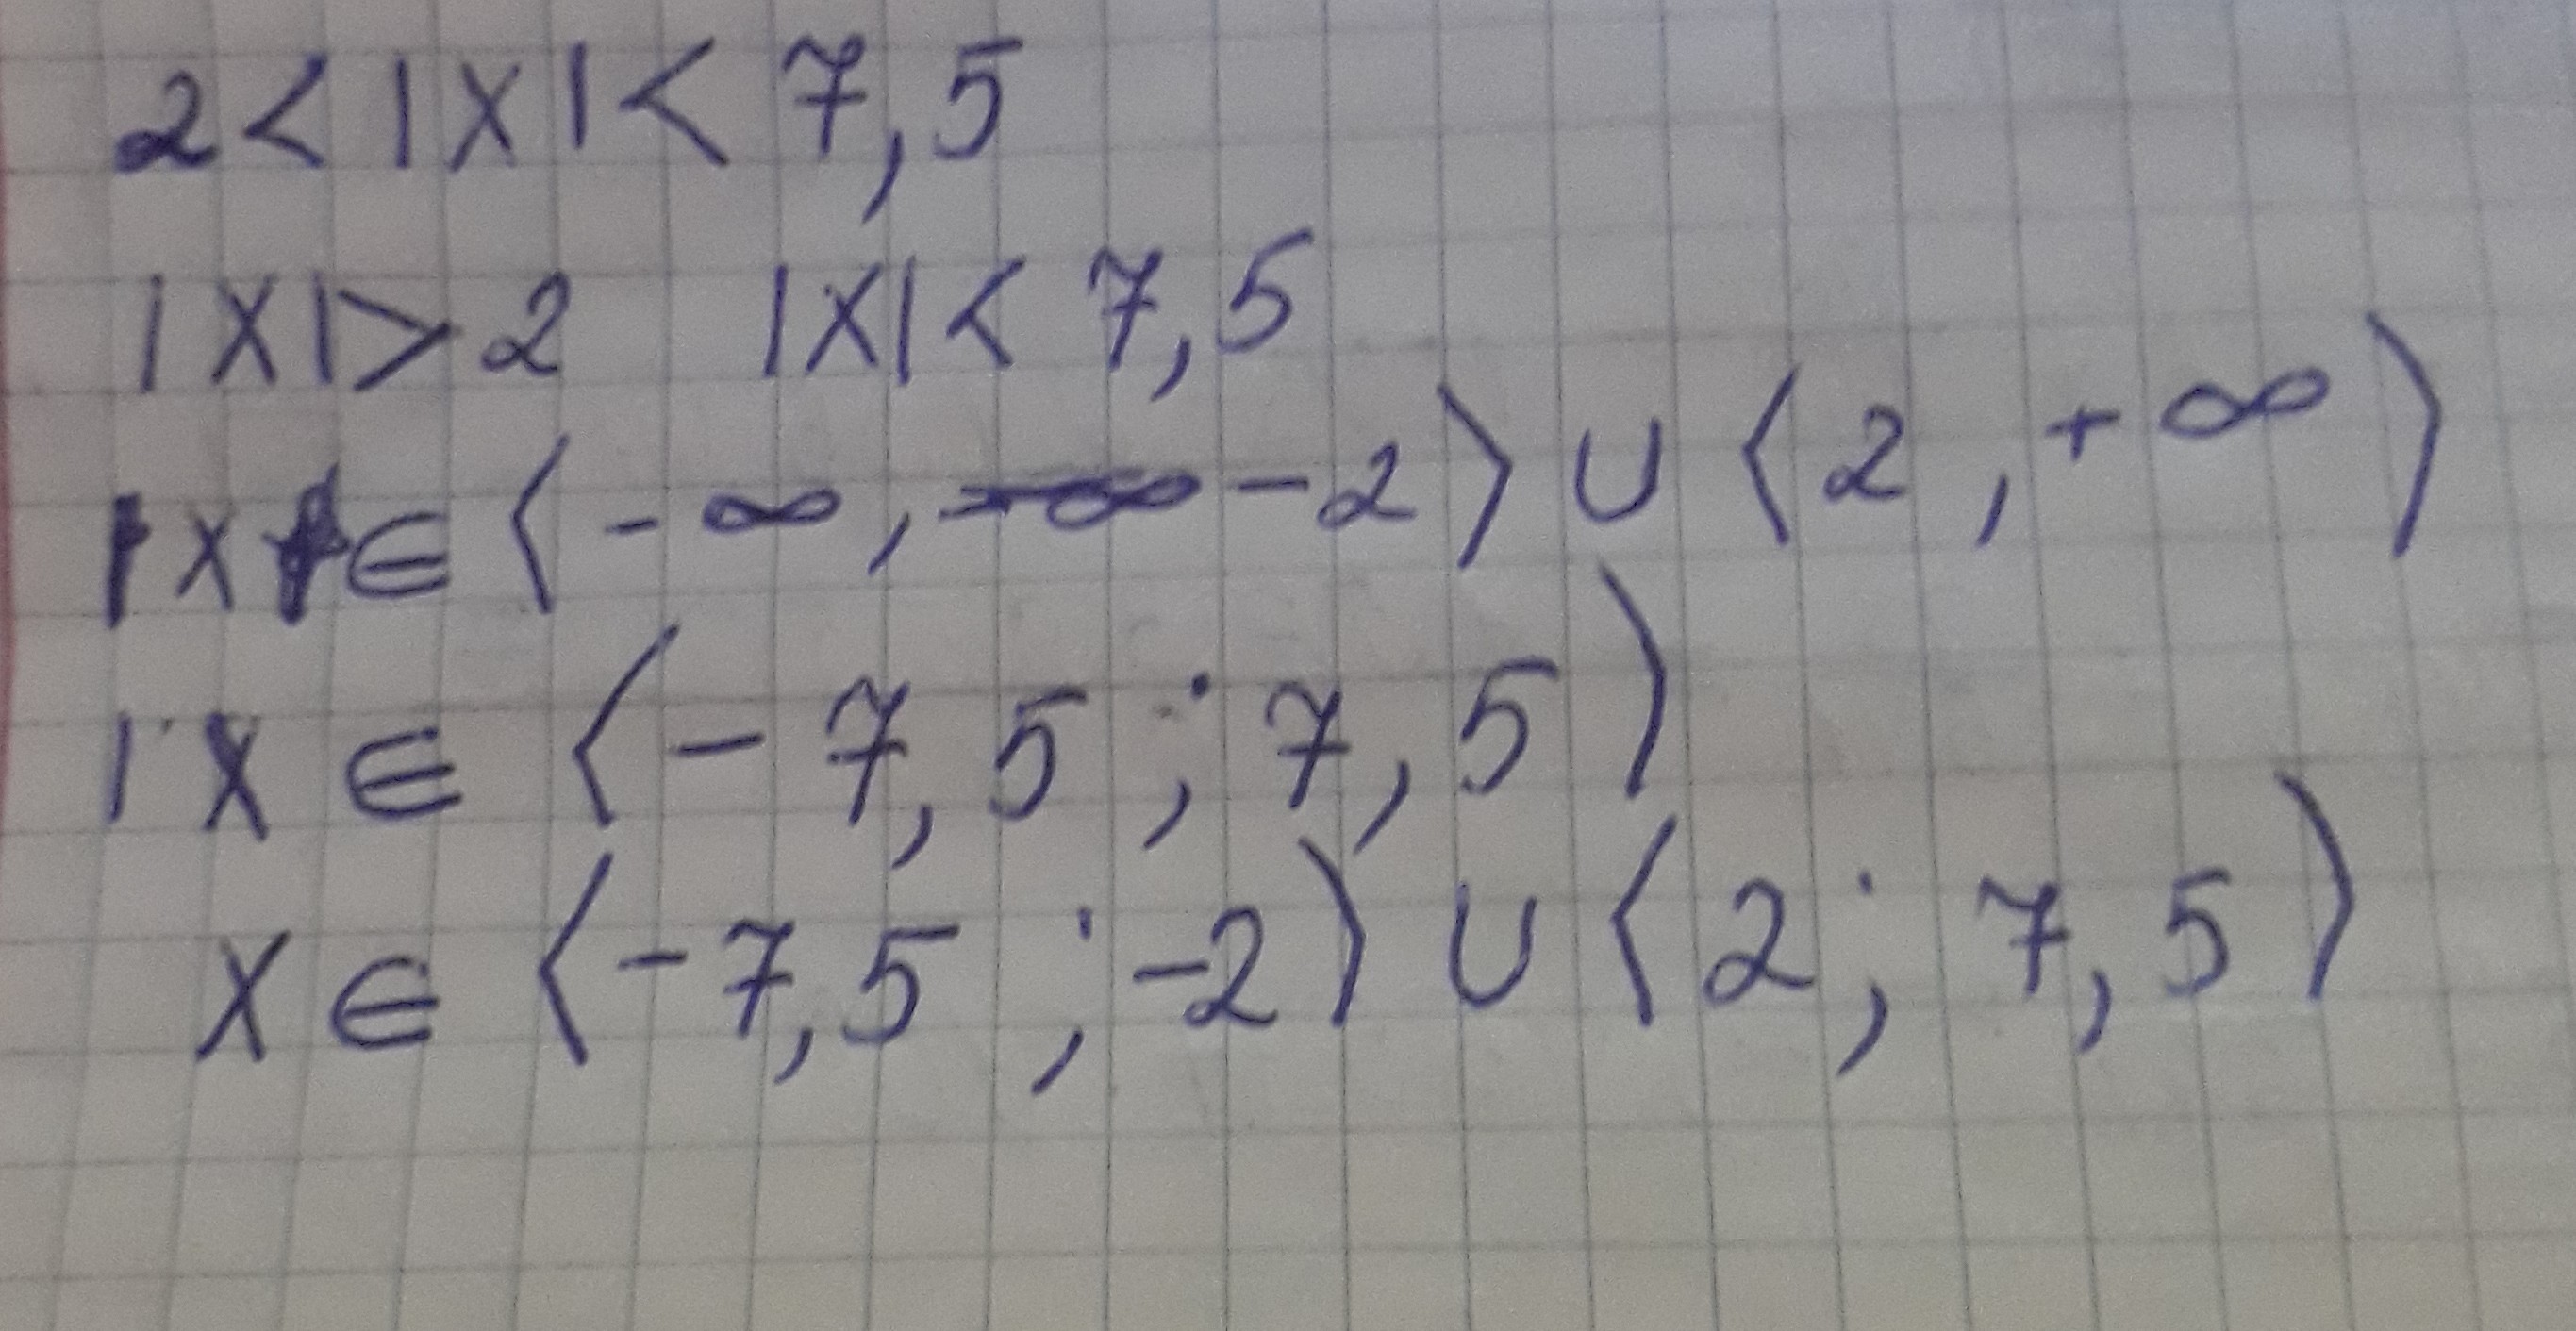 2 < |x| < 7,5
|x| > 2   |x| < 7,5
x ∈ ⟨-∞, -2⟩ ∪ ⟨2, +∞⟩
x ∈ ⟨-7,5 ; 7,5⟩
x ∈ ⟨-7,5 ; -2⟩ ∪ ⟨2 ; 7,5⟩